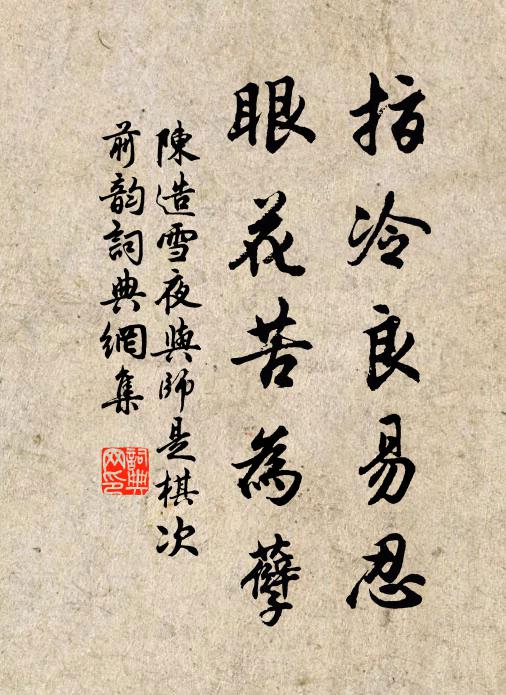 指冷良易忍
眼花苦為孽
陳造雪夜與師是棋次
前韵詞典網集
詞典網印